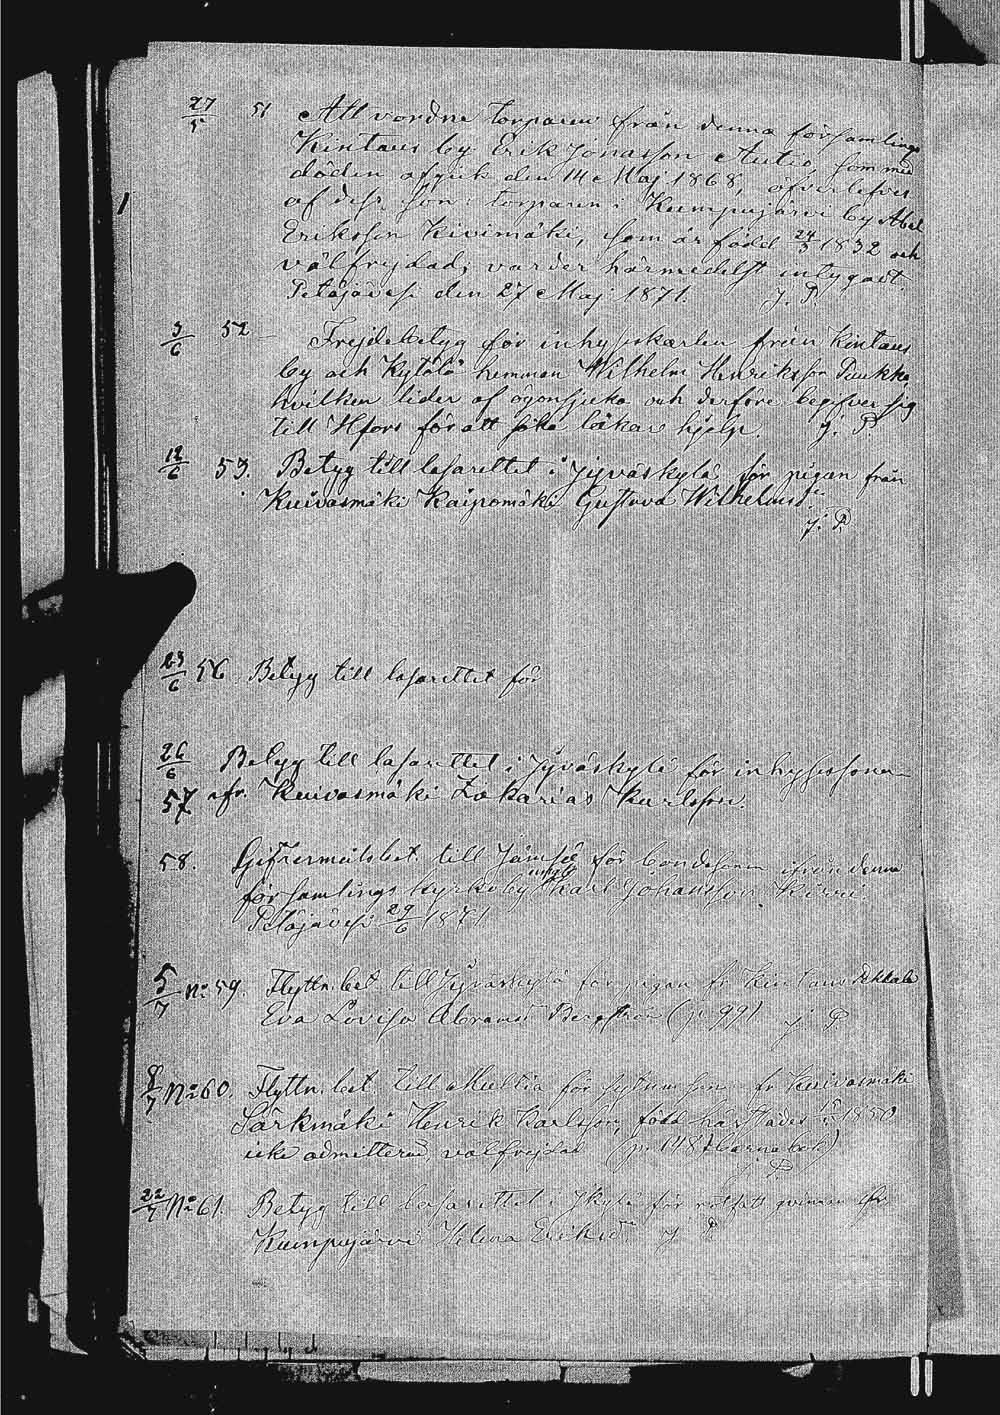 27/5 51 Att vordne torparen från denna församlings
Kintaus by Erik Jonasson Autio, som med
döden afgick den 14 Maj 1868, öfverlefves
af dess son: torparen i Kumpujärvi by Abel
Eriksson Kivimäki, som är född 24/3 1832 och
välfrejdad; varder härmedelst intygadt.
Petäjävesi den 27 Maj 1871. J. P.
3/6 52 — Frejdebetyg för inhyseskarlen från Kintaus
by och Kytölä hemman Wilhelm Henriksson Puukka,
hvilken lider af ögonsjuka och derföre begifver sig
till Hfors för att söka läkare hjelp. J. P.
12/6 53. Betyg till lasarettet i Jyväskylä för pigan från
Kuivasmäki Kaipomäki Gustava Wilhelmsd:r
J. P.
23/6 56 Betyg till lasarettet för
26/6 Betyg till lasarettet i Jyväskylä för inhysessonen
57 ifr. Kuivasmäki Zakarias Karlsson
58. Giftermålsbet. till Jämsä för bondesonen ifrån denna
församlings kyrkoby ungk. Karl Johansson
Petäjävesi 29/6 1871
5/7 No 59. Flyttn. bet. till Jyväskylä för pigan fr. Kintaus
Eva Lovisa Abramsd. Bergström (p. 99) J. P.
8/7 No 60. Flyttn. bet. till Multia för fr. Kuivasmäki
Särkmäki Henrik Karlsson, född härstädes 1850
icke admitterad, välfrejdad (p. 148 Barnabok)
J. P.
22/7 No 61. Betyg till lasarettet i Jkylä för qvinnan ifr.
Kumpujärvi Helena Eriksd:r J. P.